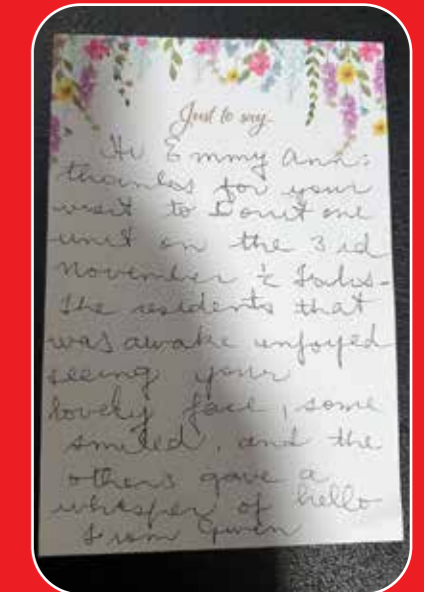 Just to say...
Hi Emmy Ann:
thanks for your
visit to
unit on the 3rd
November
the residents that
was awake enjoyed
seeing your
lovely face, some
smiled, and the
others gave a
whisper of hello
from Gwen